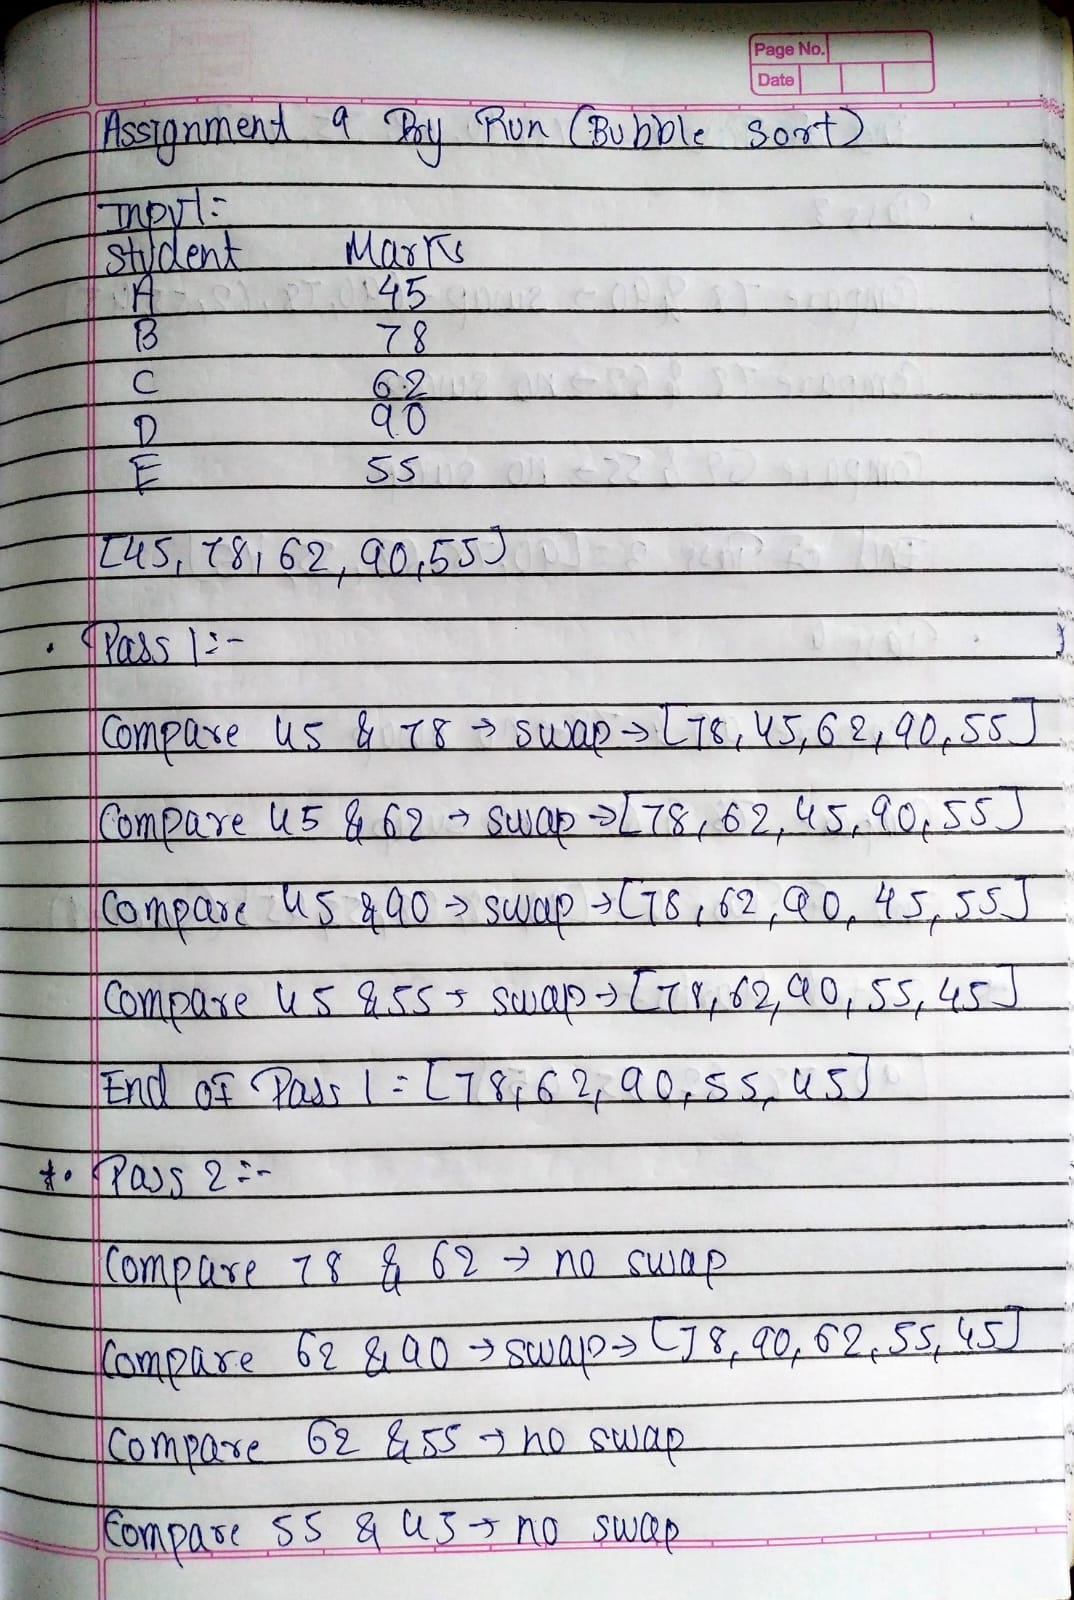 Page No.
Date
Assignment 9 Dry Run (Bubble sort)
Input:-
Student Marks
A 45
B 78
C 62
D 90
E 55
[45, 78, 62, 90, 55]
Pass 1:-
Compare 45 & 78 → swap → [78, 45, 62, 90, 55]
Compare 45 & 62 → swap → [78, 62, 45, 90, 55]
Compare 45 & 90 → swap → [78, 62, 90, 45, 55]
Compare 45 & 55 → swap → [78, 62, 90, 55, 45]
End of Pass 1 = [78, 62, 90, 55, 45]
Pass 2:-
Compare 78 & 62 → no swap
Compare 62 & 90 → swap → [78, 90, 62, 55, 45]
Compare 62 & 55 → no swap
Compare 55 & 45 → no swap